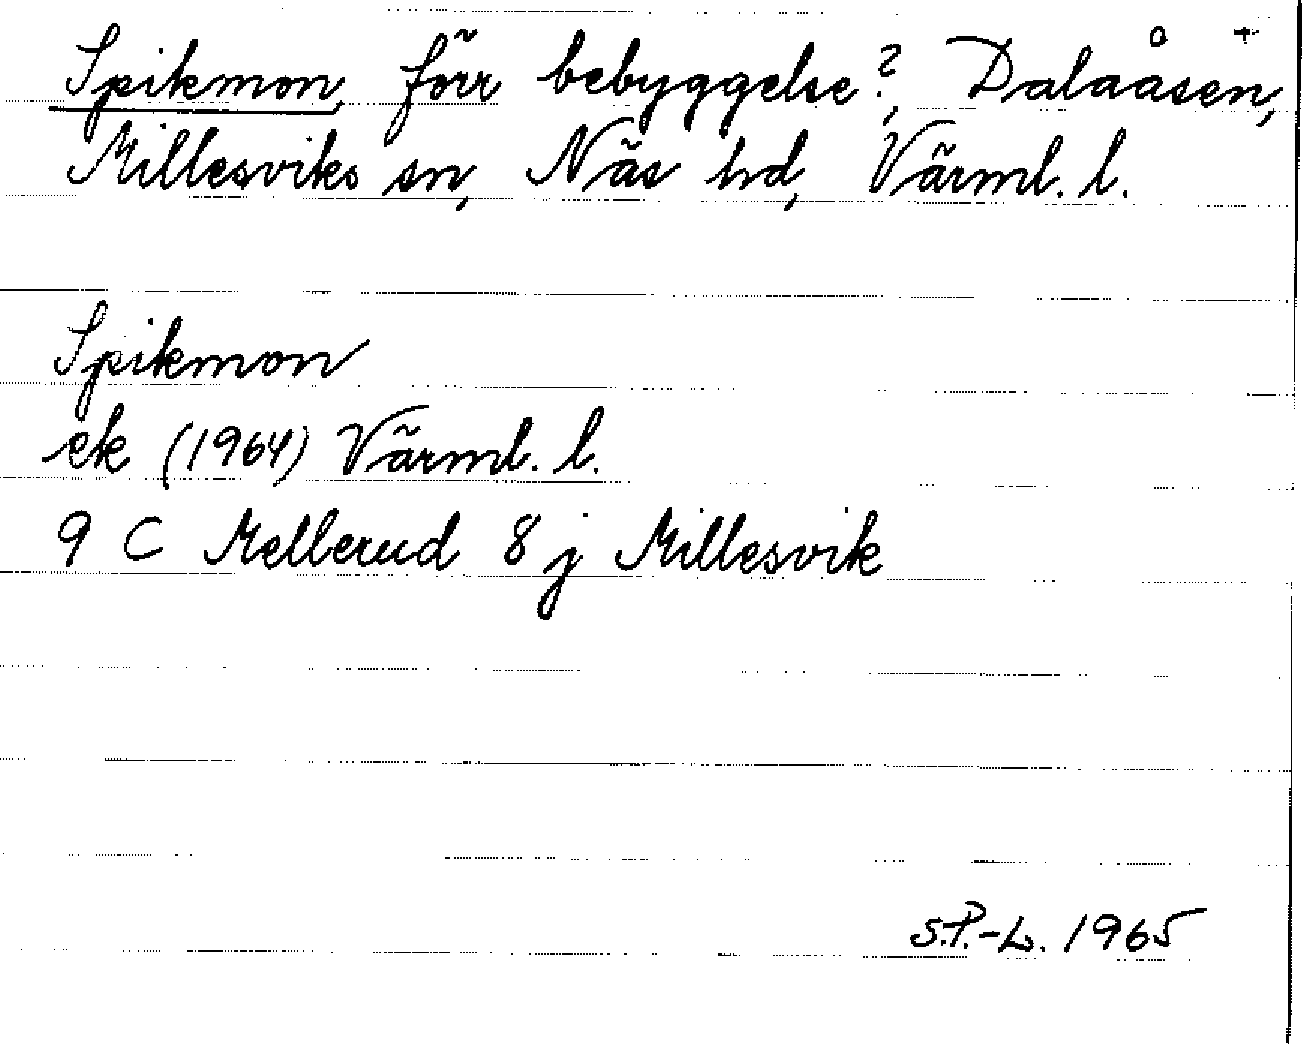 Spikmon, förr bebyggelse?, Dalaåsen,
Millesviks sn, Näs hd, Värml. l.
Spikmon
ek (1964) Värml. l.
9 C Mellerud 8 j Millesvik
S.P.-L. 1965